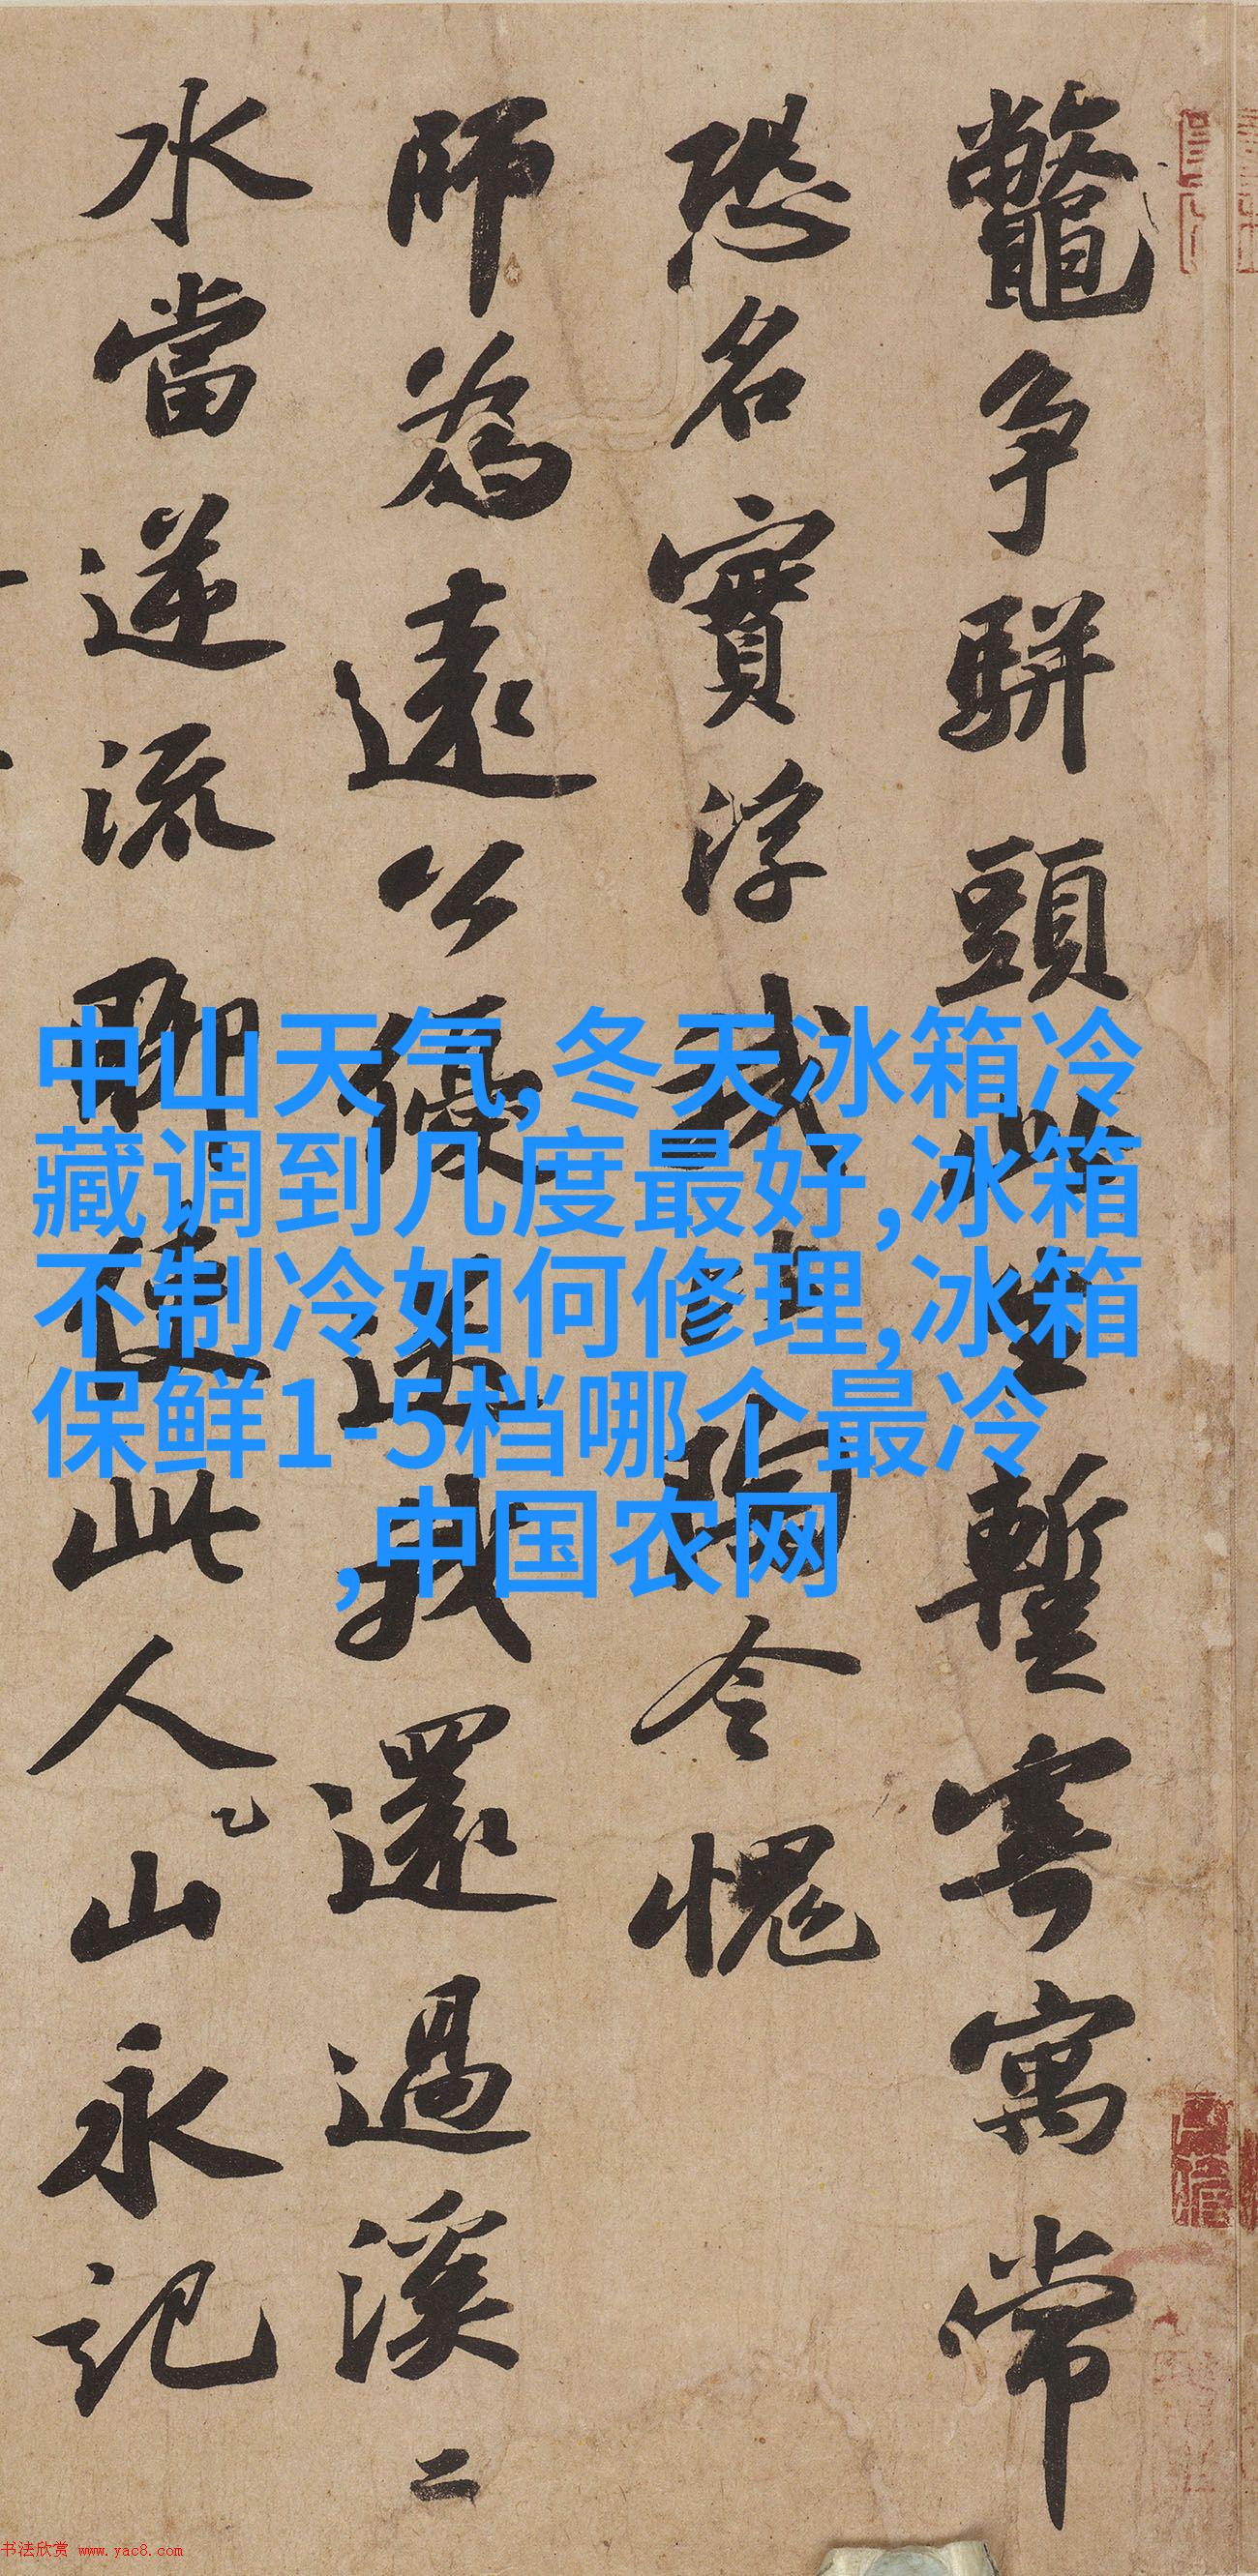 鼈争駢頭此生暫寄寓常
恐名實浮我比陶令愧
師為遠公優送我還過溪
水當逆流聊使此人山永記
二
中山天气,冬天冰箱冷
藏调到几度最好,冰箱
不制冷如何修理,冰箱
保鲜1-5档哪个最冷
,中国农网
书法欣赏 www.yac8.com